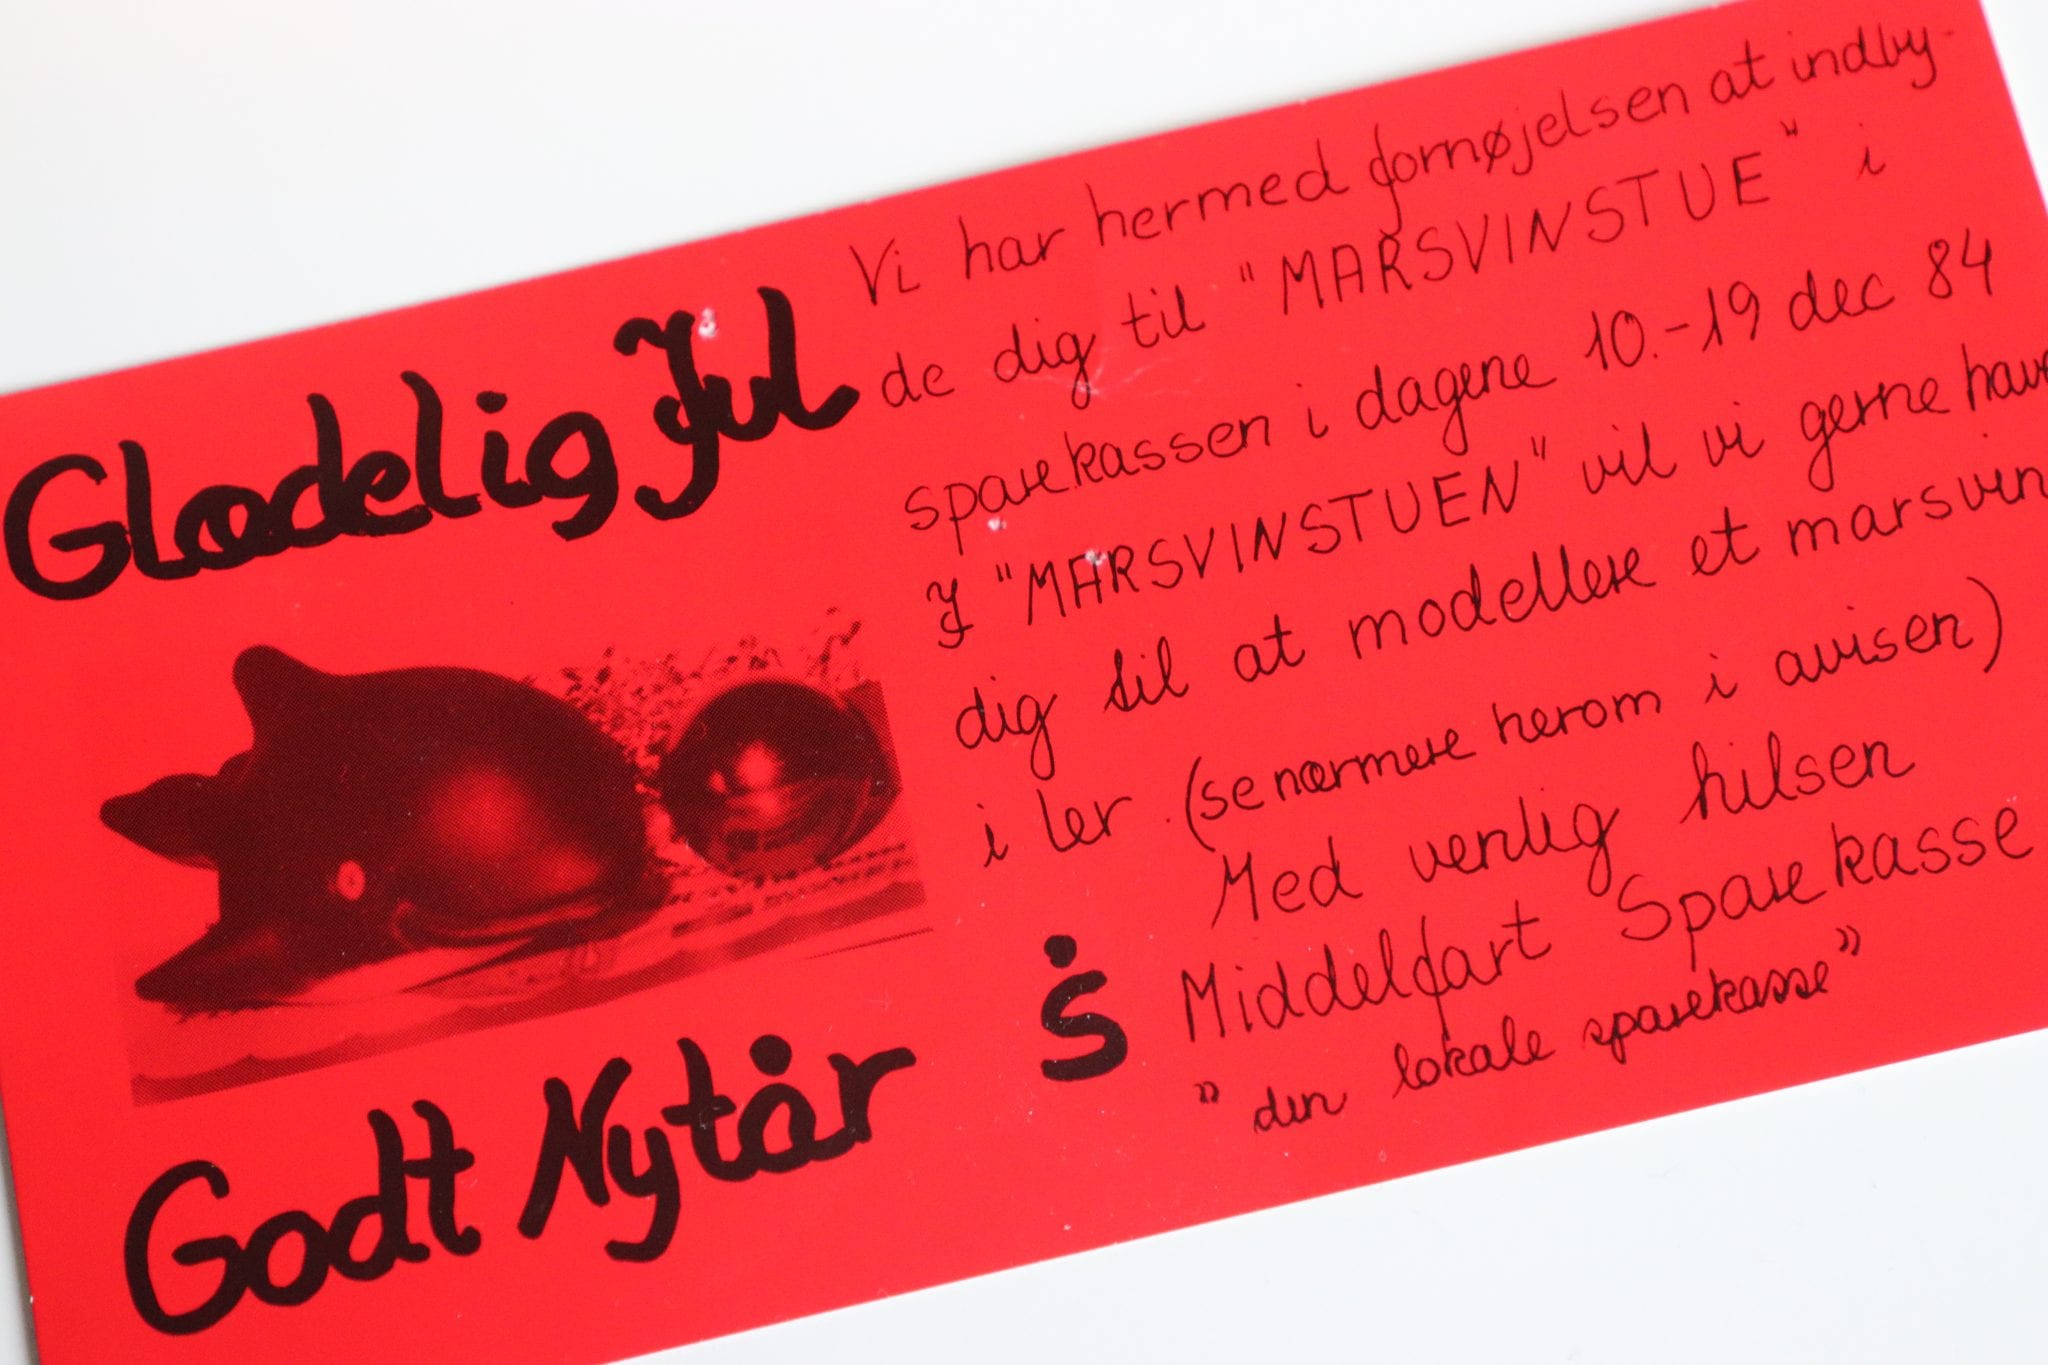 Glædelig Jul
Godt Nytår
Vi har hermed fornøjelsen at indby-
de dig til "MARSVINSTUE" i
sparekassen i dagene 10.-19 dec 84
I "MARSVINSTUEN" vil vi gerne have
dig til at modellere et marsvin
i ler. (se nærmere herom i avisen)
Med venlig hilsen
Ṡ Middelfart Sparekasse
"den lokale sparekasse"